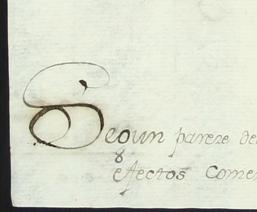 Segun pareze de
efectos Comer